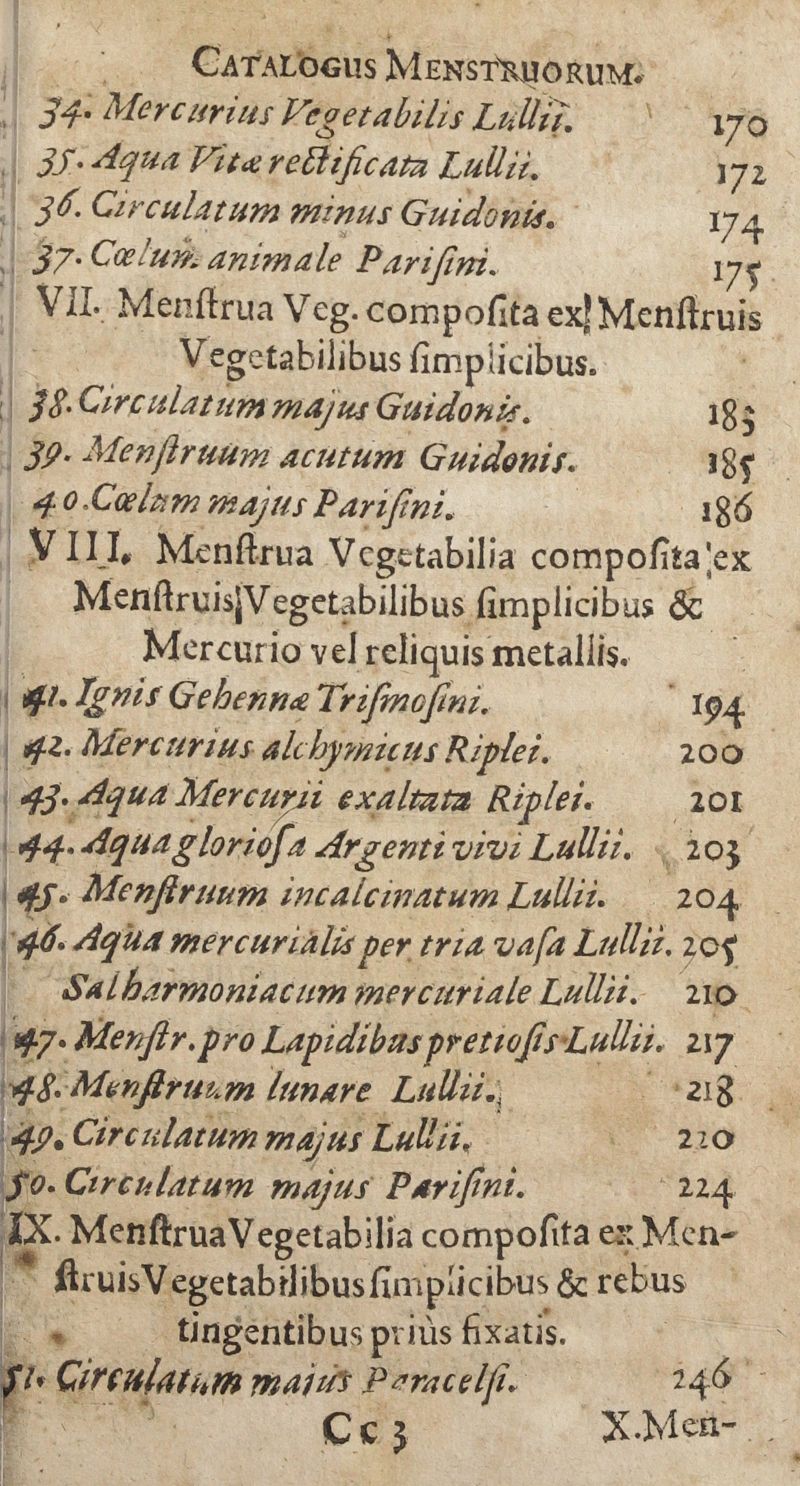 CATALOGUS MENSTRUORUM.
34. Mercurius Vegetabilis Lullii. 170
35. Aqua Vitæ rectificata Lullii. 172
36. Circulatum minus Guidonis. 174
37. Cœlum animale Pariſini. 175
VII. Menſtrua Veg. compoſita ex Menſtruis
Vegetabilibus ſimplicibus.
38. Circulatum majus Guidonis. 183
39. Menſtruum acutum Guidonis. 185
40. Cœlum majus Pariſini. 186
VIII. Menſtrua Vegetabilia compoſita ex
Menſtruis Vegetabilibus ſimplicibus &
Mercurio vel reliquis metallis.
41. Ignis Gehennæ Triſmoſini. 194
42. Mercurius alchymicus Riplei. 200
43. Aqua Mercurii exaltata Riplei. 201
44. Aqua glorioſa Argenti vivi Lullii. 203
45. Menſtruum incalcinatum Lullii. 204
46. Aqua mercurialis per tria vaſa Lullii. 205
Sal harmoniacum mercuriale Lullii. 210
47. Menſtr. pro Lapidibus pretioſis Lullii. 217
48. Menſtruum lunare Lullii. 218
49. Circulatum majus Lullii. 220
50. Circulatum majus Pariſini. 224
IX. Menſtrua Vegetabilia compoſita ex Men-
ſtruis Vegetabilibus ſimplicibus & rebus
tingentibus priùs fixatis.
51. Circulatum maius Paracelſi. 246
Cc 3 X. Men-